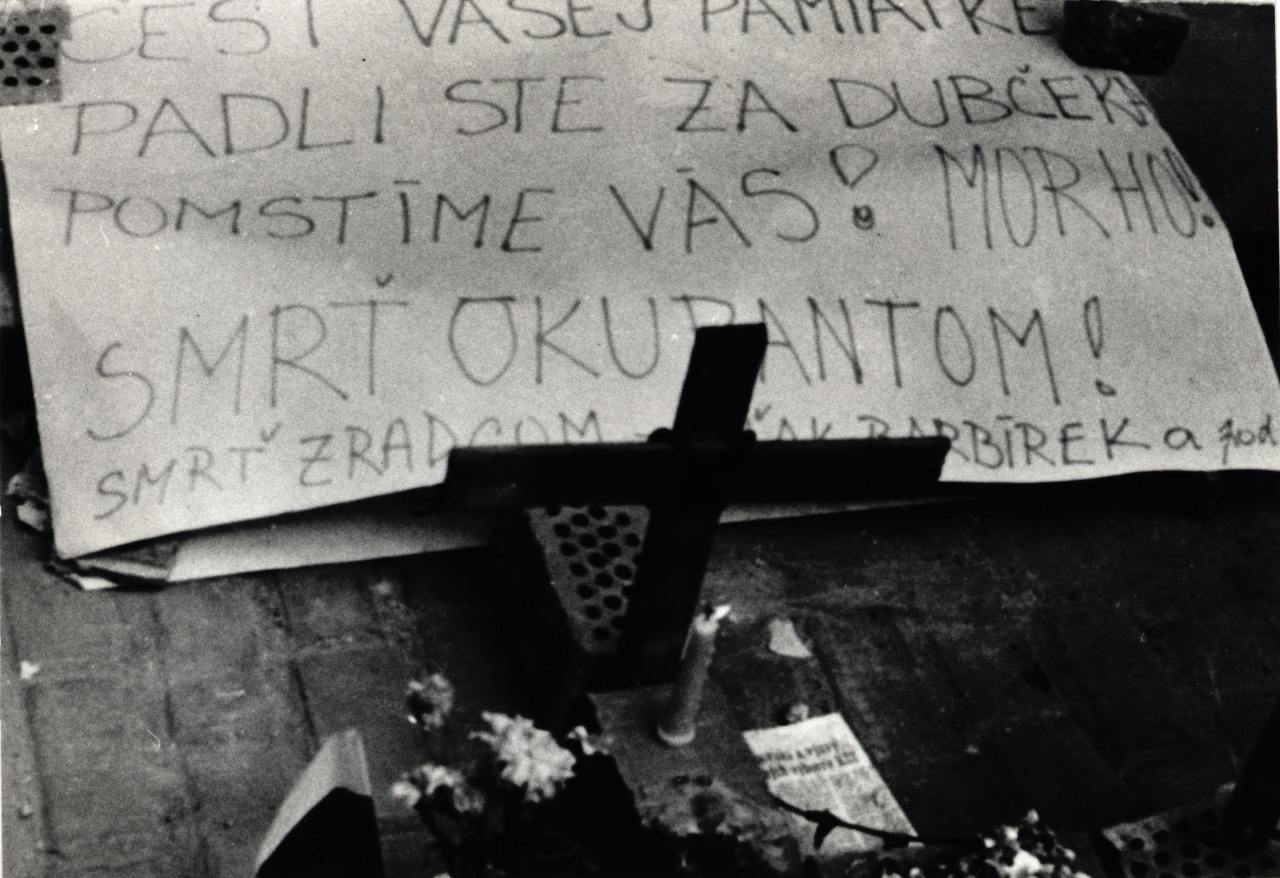 ČEST VAŠEJ PAMIATKE
PADLI STE ZA DUBČEKA
POMSTÍME VÁS! MOR HO!
SMRŤ OKUPANTOM!
SMRŤ ZRADCOM BARBÍREK a pod